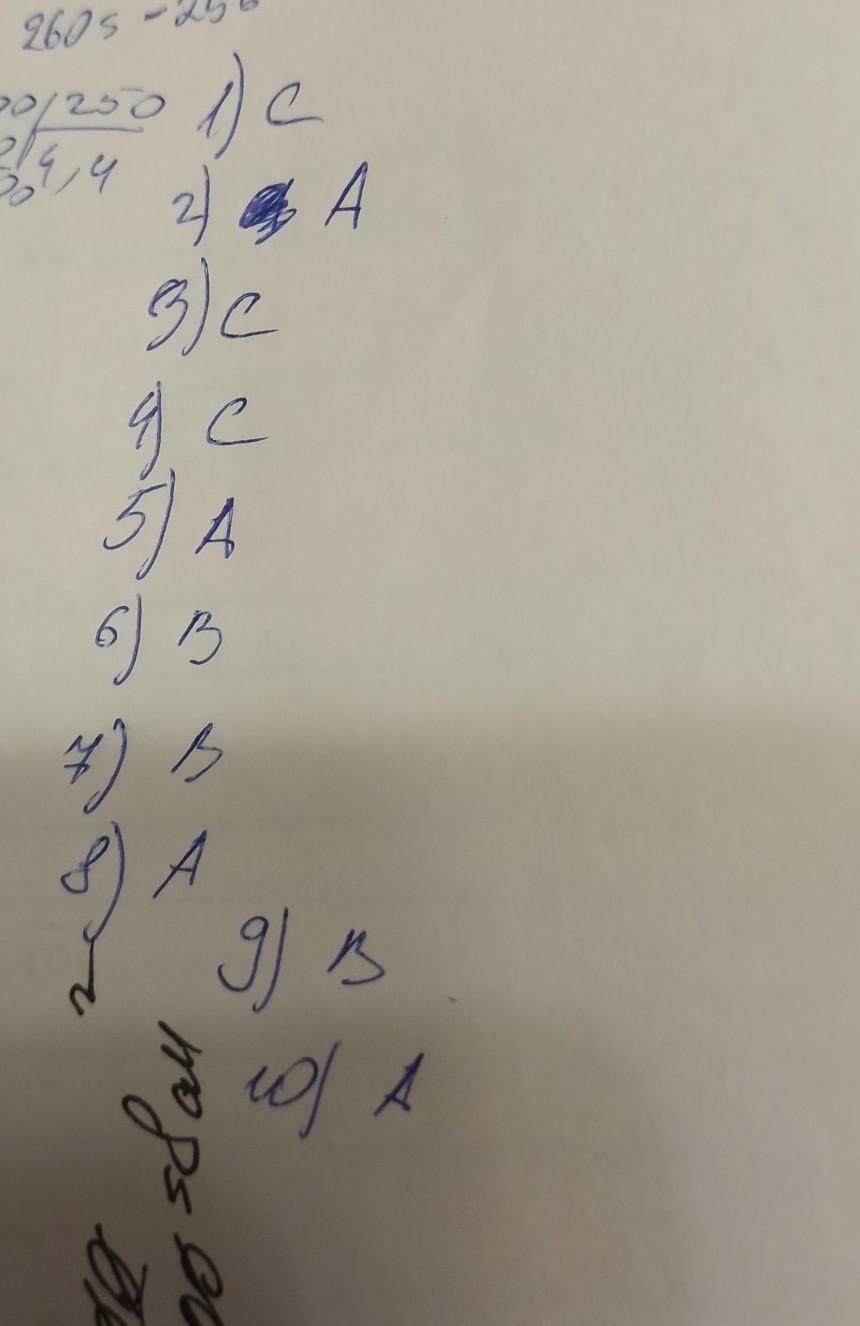 260s - 25
250
4,4
1) C
2) A
3) C
4) C
5) A
6) B
7) B
8) A
9) B
10) A